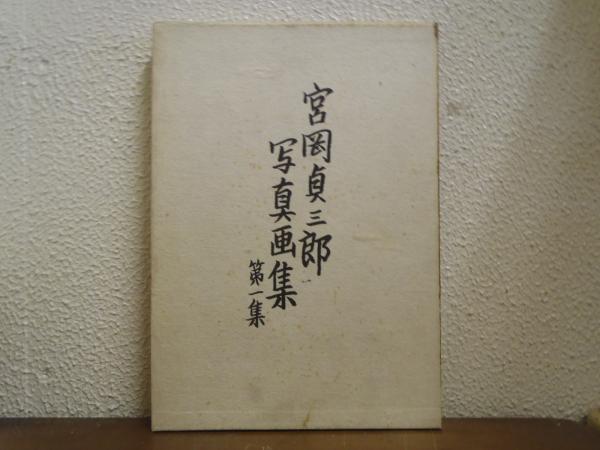 宮岡貞三郎
写真画集
第一集